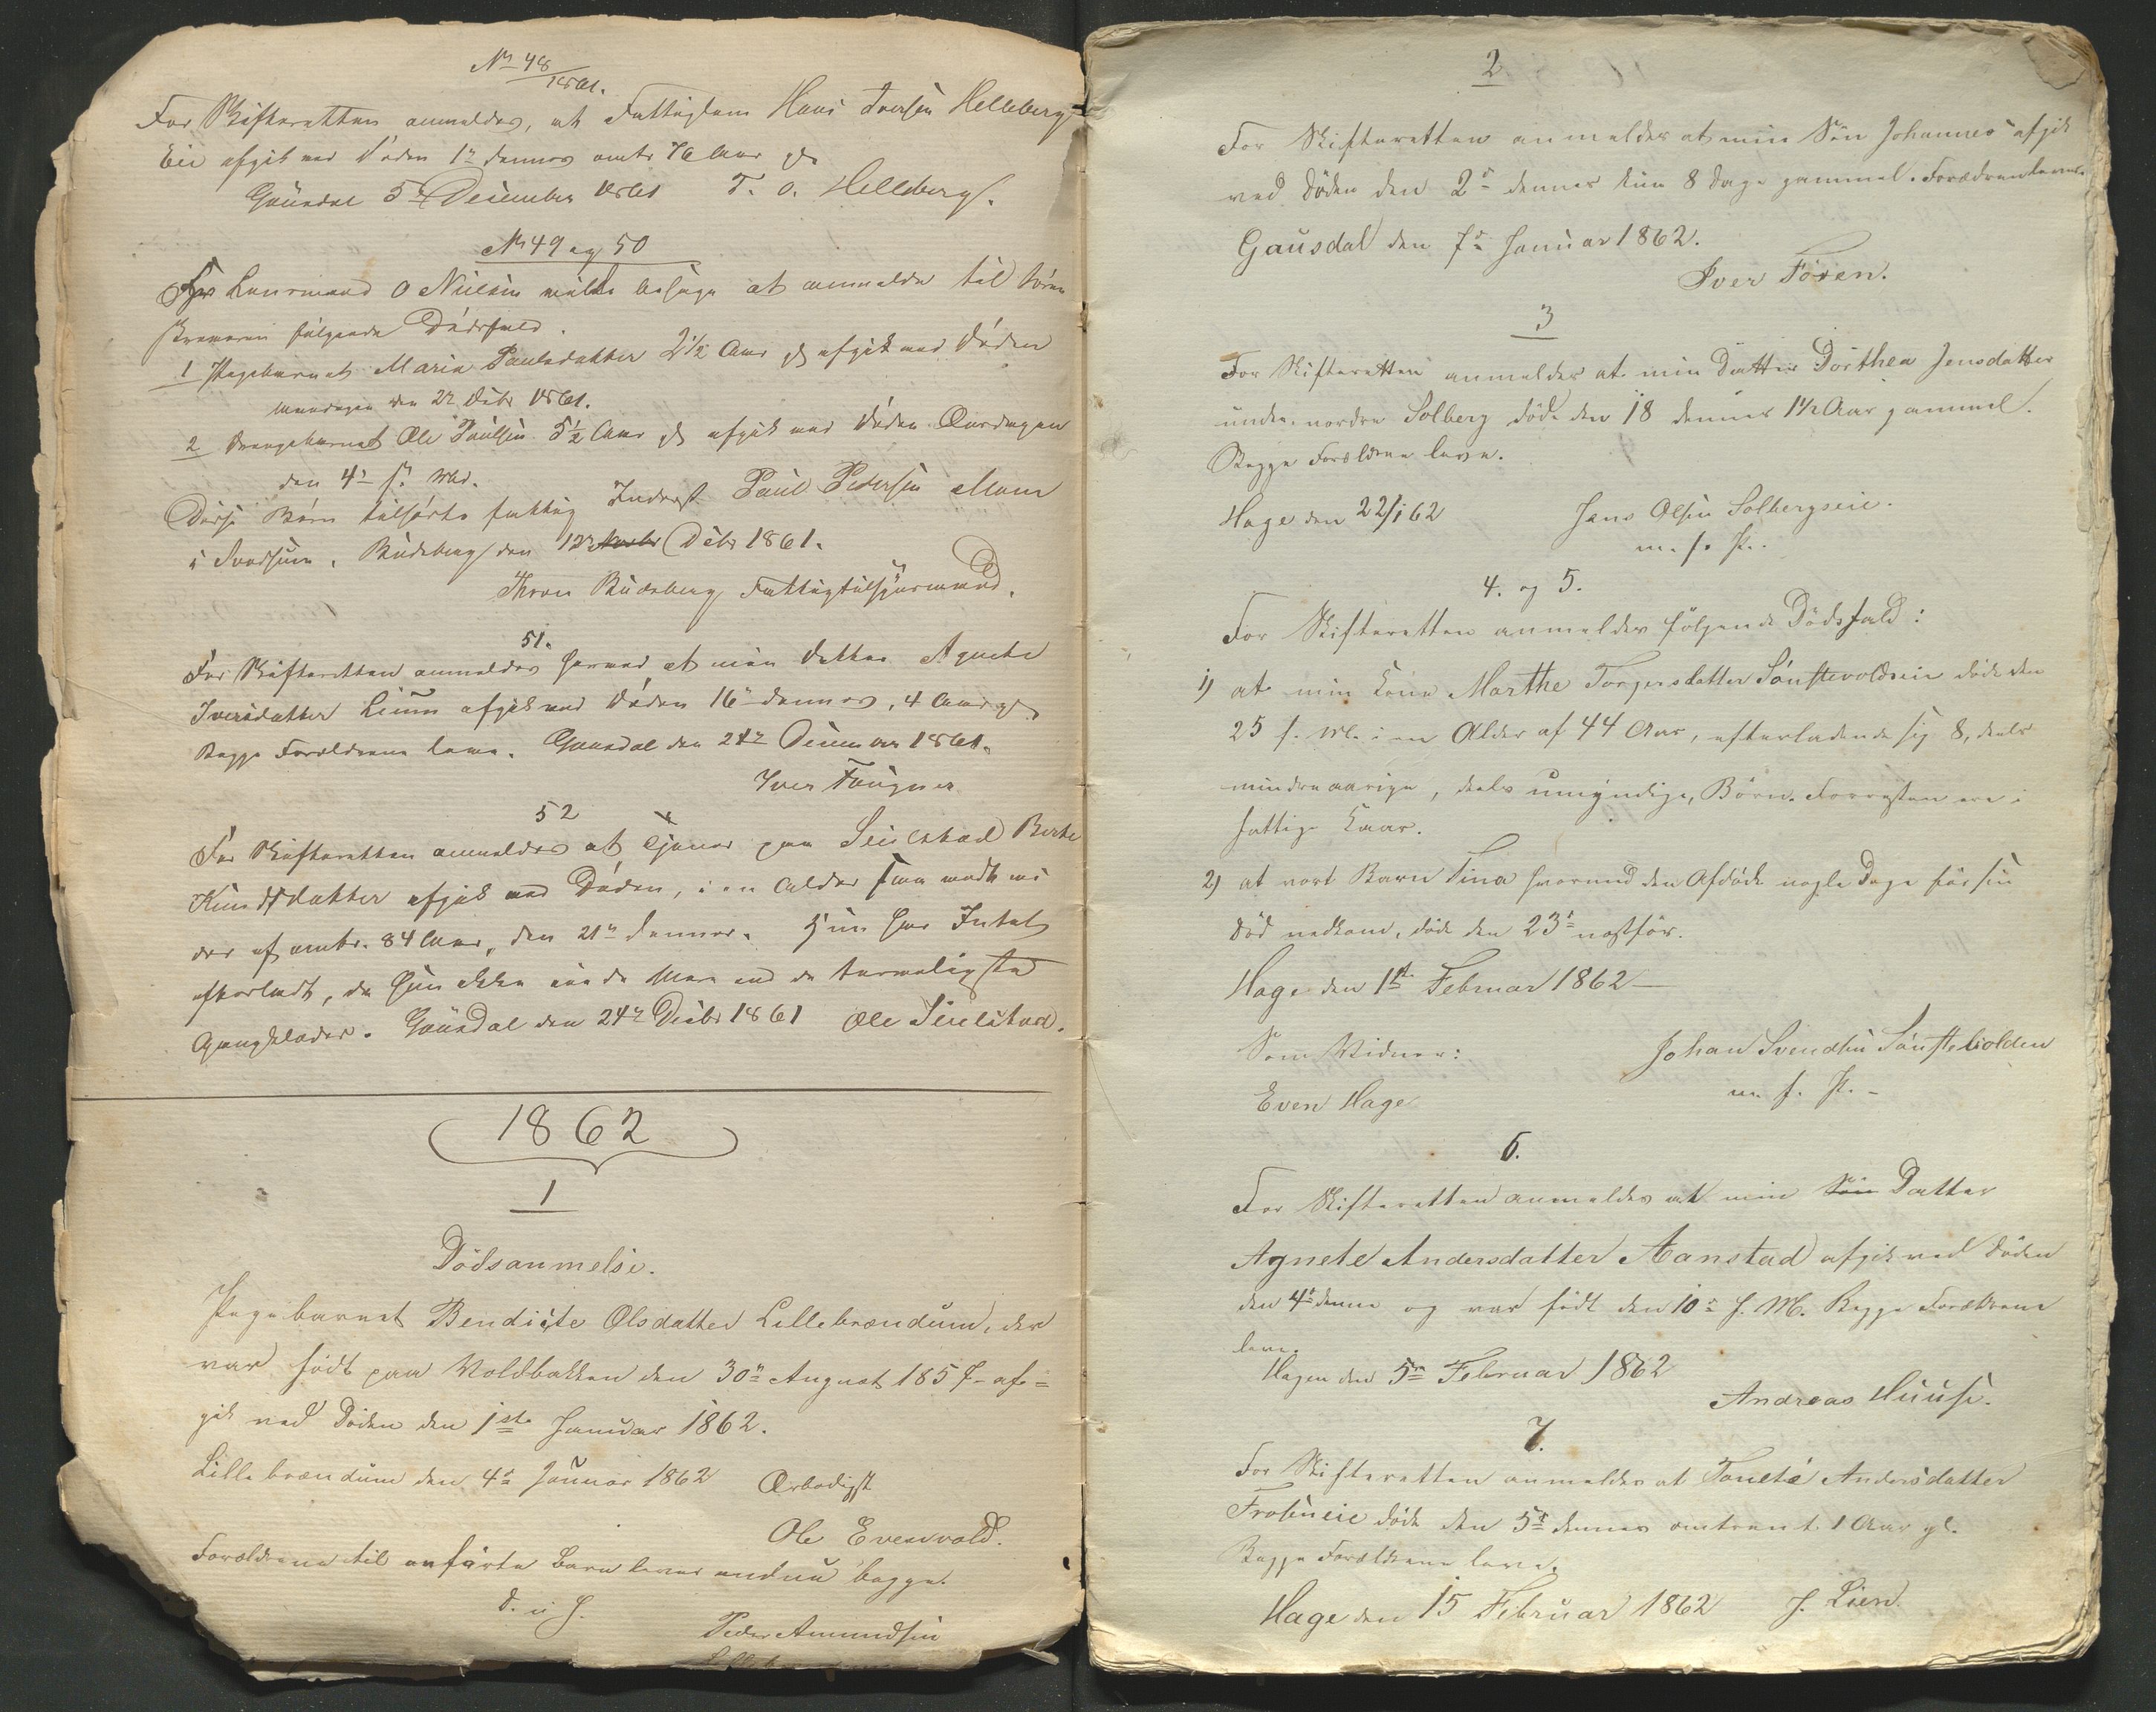 No 48/1861.
For Skifteretten anmeldes, at Fattiglem Hans Iversen Helleberg
Eie afgik ved Døden 1ste dennes omtr 76 Aar gl
Gausdal 5te December 1861 T. O. Helleberg.
No 49 og 50
Hr Lensmand O Nielsen vilde behage at anmelde til Soren
skriveren følgende Dødsfald.
1 Pigebarnet Maria Paulsdatter 2 1/2 Aar gl afgik ved Døden
Mandagen den 2den Debr 1861.
2 Drengebarnet Ole Paulsen 5 1/2 Aar gl afgik ved Døden Onsdagen
den 4de s. Md.
Disse Børn tilhørte fattig Inderst Paul Pedersen Moen
i Svadsum. Rudsberg den 12te Novbr Debr 1861.
Iver Rudsberg Fattigtilsynsmand.
51.
For Skifteretten anmeldes herved at min Datter Agnete
Iversdatter Lium afgik ved Døden 16de dennes, 4 Aar gl
Begge Forældrene leve. Gausdal den 24de December 1861.
Iver Fougner
52
For Skifteretten anmeldes at Tjener paa Seielstad Berte
Knudsdatter afgik ved Døden, i en Alder saa vidt vi
der af omtr. 84 Aar, den 21de dennes. Hun har Intet
efterladt, da hun ikke eiede Mer end de tarveligste
Gangklæder. Gausdal den 24de Debr 1861 Ole Seielstad.
1862
1
Dødsanmelse.
Pigebarnet Bendicte Olsdatter Lillebrændum, der
var født paa Voldbakken den 30te August 1857 - af=
gik ved Døden den 1ste Januar 1862.
Lillebrændum den 4de Januar 1862 Ærbødigst
Ole Evensvold.
Forældrene til anførte Barn lever endnu begge.
D. u S.
Peder Amundsen
2
For Skifteretten anmeldes at min Søn Johannes afgik
ved Døden den 2den dennes kun 8 Dage gammel. Forældrene leve.
Gausdal den 7de Januar 1862.
Iver Foren.
3
For Skifteretten anmeldes at min Datter Dorthea Jensdatter
under nordre Solberg døde den 18 dennes 1 1/2 Aar gammel.
Begge Forældrene leve.
Hage den 22/1 62 Jens Olsen Solbergseie.
m. f. P.
4. og 5.
For Skifteretten anmeldes følgende Dødsfald:
1) at min Kone Marthe Torgersdatter Sønstevoldseie døde den
25 f. M. i en Alder af 44 Aar, efterladende sig 8, deels
mindreaarige, deels umyndige, Børn. Forresten ere i
fattige Kaar.
2) at vort Barn Tina hvormed den Afdøde nogle Dage før sin
Død nedkom, døde den 23de næstfør.
Hage den 1ste Februar 1862 —
Som Vidner: Johan Svendsen Sønstevolden
Even Hage m. f. P. -
6.
For Skifteretten anmeldes at min Søn Datter
Agnete Andersdatter Aanstad afgik ved Døden
den 4de denne og var født den 10de f. M. Begge Forældrene
leve.
Hagen den 5te Februar 1862
Andreas Huuse.
7.
For Skifteretten anmeldes at Tonete Andersdatter
Froseneie døde den 5te dennes omtrent 1 Aar gl.
Begge Forældrene leve.
Hage den 15 Februar 1862 J. Lien